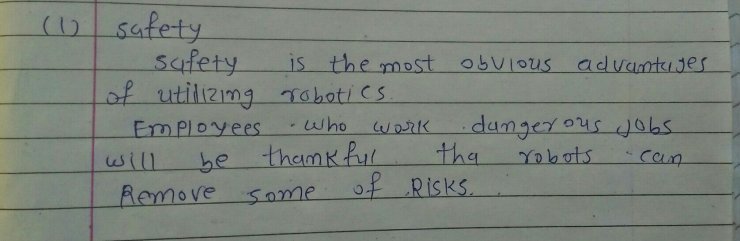 (1) safety
safety is the most obvious advantages
of utilizing robotics.
Employees who work dangerous jobs
will be thankful tha robots can
Remove some of Risks.